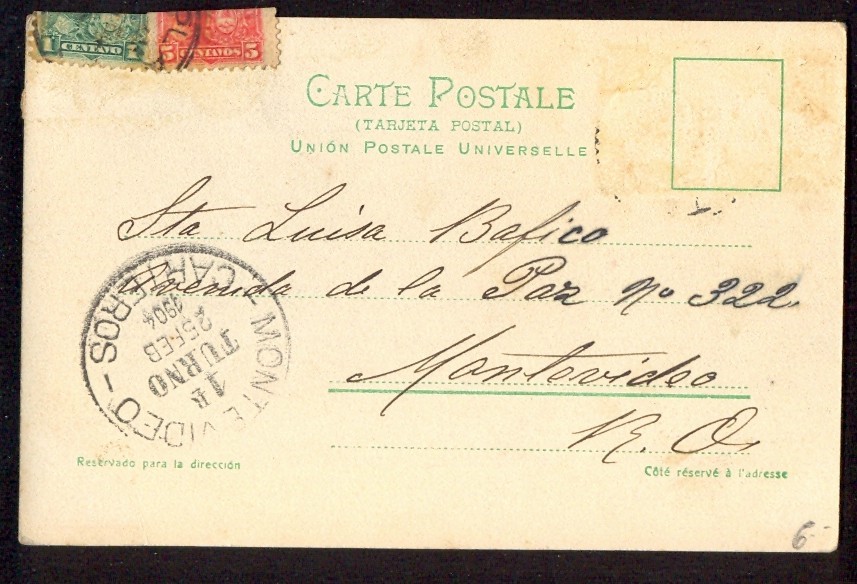 1 CENTAVO
5 CENTAVOS 5
CARTE POSTALE
(TARJETA POSTAL)
UNIÓN POSTALE UNIVERSELLE
Sta Luisa Bafico
Avenida de la Paz No 322
Montevideo
R. O.
MONTEVIDEO - CARTEROS -
1904
25 FEB
TURNO
1R
Reservado para la dirección
Côté réservé à l'adresse
6-